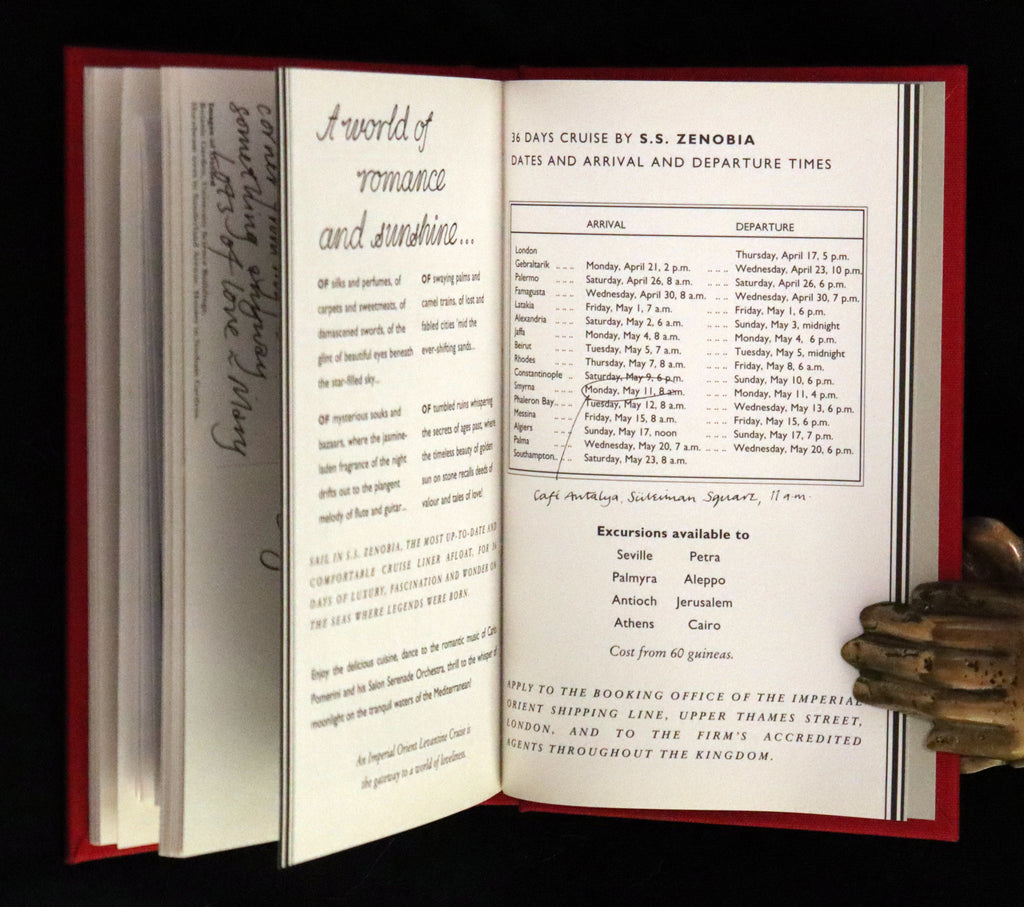 corner
something anyway
lots of love & Mary
A world of
romance
and sunshine...
OF silks and perfumes, of
carpets and sweetmeats, of
damascened swords, of the
glint of beautiful eyes beneath
the star-filled sky...
OF swaying palms and
camel trains, of lost and
fabled cities 'mid the
ever-shifting sands...
OF mysterious souks and
bazaars, where the jasmine-
laden fragrance of the night
drifts out to the plangent
melody of flute and guitar...
OF tumbled ruins whispering
the secrets of ages past, where
the timeless beauty of golden
sun on stone recalls deeds of
valour and tales of love!
SAIL IN S.S. ZENOBIA, THE MOST UP-TO-DATE AND
COMFORTABLE CRUISE LINER AFLOAT, FOR 36
DAYS OF LUXURY, FASCINATION AND WONDER ON
THE SEAS WHERE LEGENDS WERE BORN.
Enjoy the delicious cuisine, dance to the romantic music of Carlo
Pomerini and his Salon Serenade Orchestra, thrill to the whisper of
moonlight on the tranquil waters of the Mediterranean!
An Imperial Orient Levantine Cruise is
the gateway to a world of loveliness.
36 DAYS CRUISE BY S.S. ZENOBIA
DATES AND ARRIVAL AND DEPARTURE TIMES
ARRIVAL DEPARTURE
London Thursday, April 17, 5 p.m.
Gebraltarik .... Monday, April 21, 2 p.m. .... Wednesday, April 23, 10 p.m.
Palermo .... Saturday, April 26, 8 a.m. .... Saturday, April 26, 6 p.m.
Famagusta .... Wednesday, April 30, 8 a.m. .... Wednesday, April 30, 7 p.m.
Latakia .... Friday, May 1, 7 a.m. .... Friday, May 1, 6 p.m.
Alexandria .... Saturday, May 2, 6 a.m. .... Sunday, May 3, midnight
Jaffa .... Monday, May 4, 8 a.m. .... Monday, May 4, 6 p.m.
Beirut .... Tuesday, May 5, 7 a.m. .... Tuesday, May 5, midnight
Rhodes .... Thursday, May 7, 8 a.m. .... Friday, May 8, 6 a.m.
Constantinople .. Saturday, May 9, 6 p.m. .... Sunday, May 10, 6 p.m.
Smyrna .... Monday, May 11, 8 a.m. .... Monday, May 11, 4 p.m.
Phaleron Bay.... Tuesday, May 12, 8 a.m. .... Wednesday, May 13, 6 p.m.
Messina .... Friday, May 15, 8 a.m. .... Friday, May 15, 6 p.m.
Algiers .... Sunday, May 17, noon .... Sunday, May 17, 7 p.m.
Palma .... Wednesday, May 20, 7 a.m. .... Wednesday, May 20, 6 p.m.
Southampton.. .. Saturday, May 23, 8 a.m.
Café Antalya, Süleiman Square, 11 a.m.
Excursions available to
Seville Petra
Palmyra Aleppo
Antioch Jerusalem
Athens Cairo
Cost from 60 guineas.
APPLY TO THE BOOKING OFFICE OF THE IMPERIAL
ORIENT SHIPPING LINE, UPPER THAMES STREET,
LONDON, AND TO THE FIRM'S ACCREDITED
AGENTS THROUGHOUT THE KINGDOM.